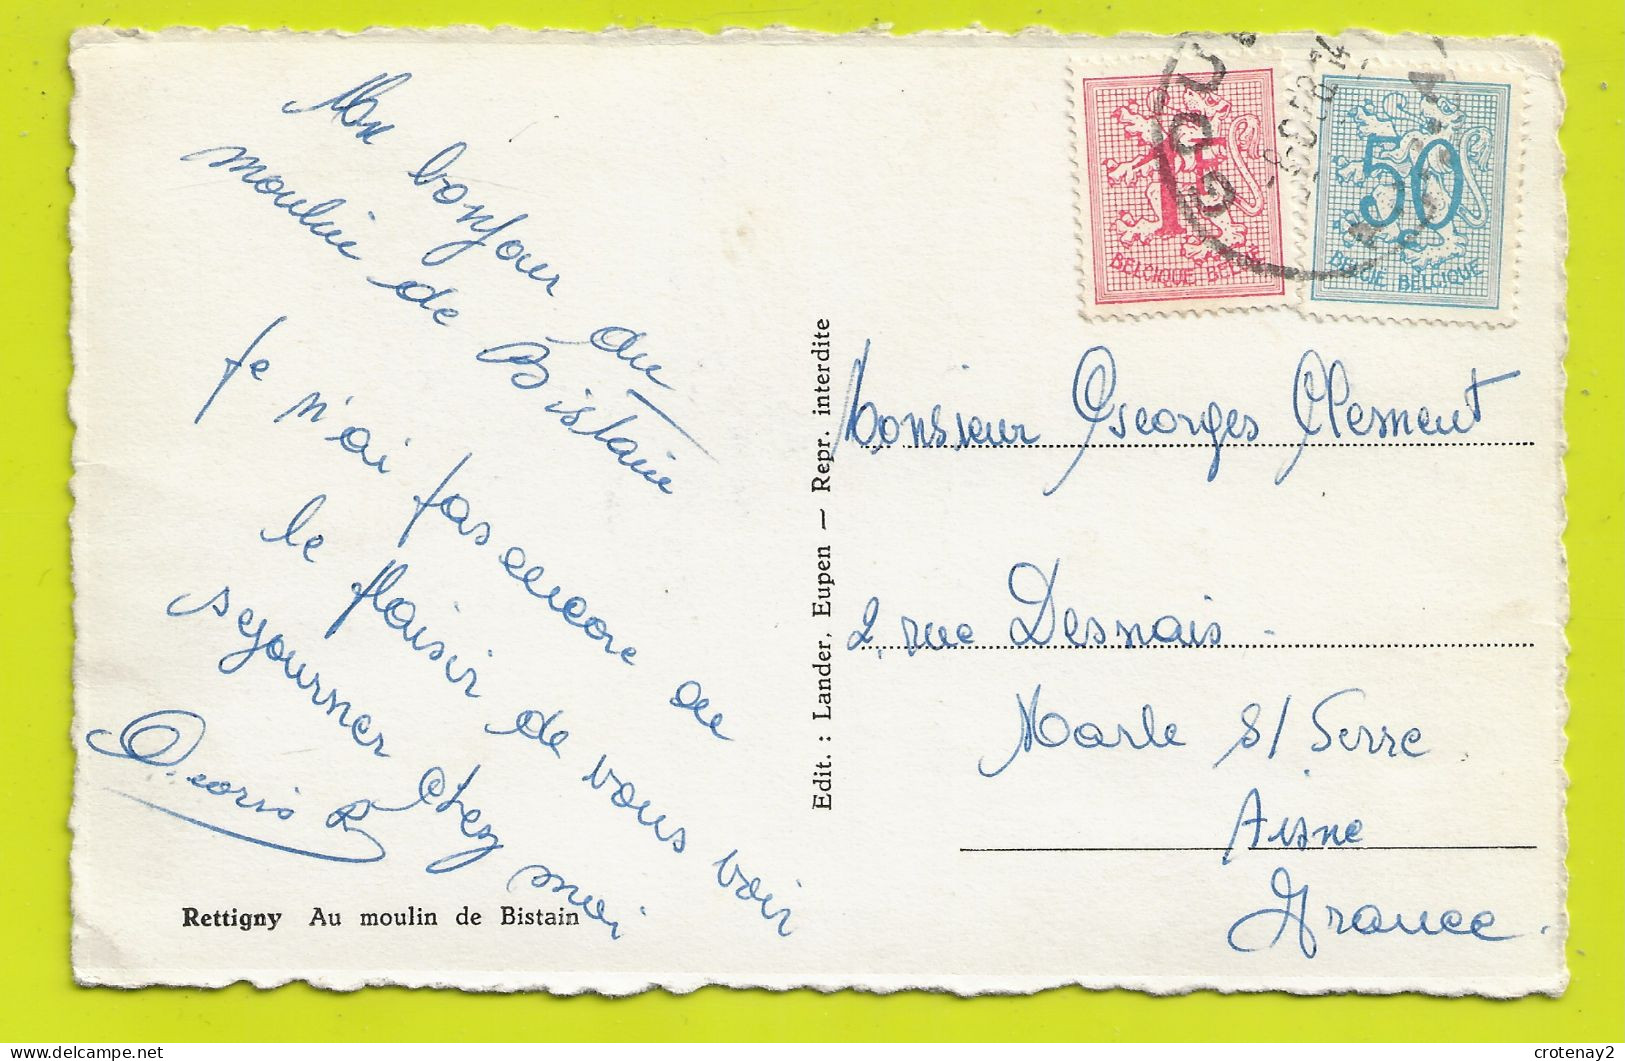 Un bonjour du
moulin de Bistain
Je n'ai pas encore eu
le plaisir de vous voir
séjourner chez moi
Rettigny Au moulin de Bistain
Edit. : Lander, Eupen — Repr. interdite
GOU
1F
BELGIQUE BELGIË
50
BELGIE BELGIQUE
Monsieur Georges Clement
2, rue Desnais
Marle s/ Serre
Aisne
France.
crotenay2